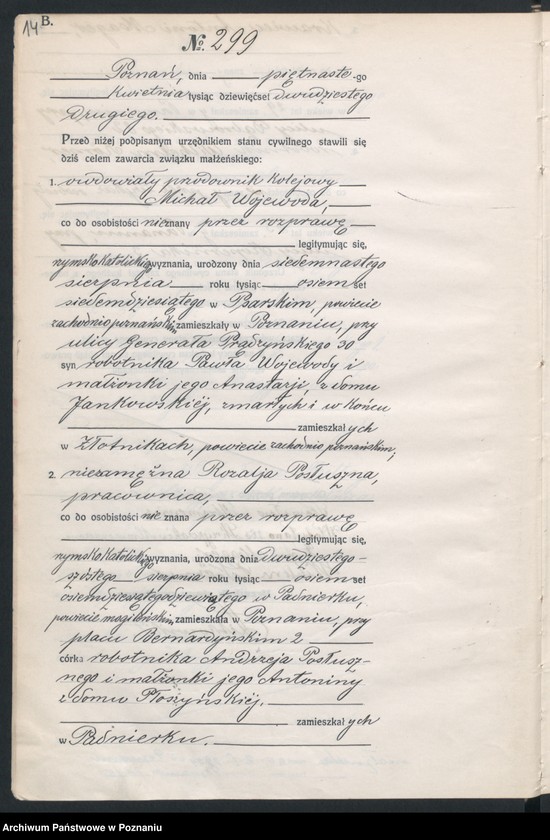 14 B.
No. 299
Poznań, dnia piętnaste-go
Kwietnia tysiąc dziewięćset dwudziestego
Drugiego.
Przed niżej podpisanym urzędnikiem stanu cywilnego stawili się
dziś celem zawarcia związku małżeńskiego:
1. owdowiały przodownik kolejowy
Michał Wojewoda,
co do osobistości nieznany przez rozprawę
legitymując się,
rzymskokatolickiego wyznania, urodzony dnia siedemnastego
sierpnia roku tysiąc osiem set
siedemdziesiątego w Psarskim, powiecie
zachodniopoznańskim, zamieszkały w Poznaniu, przy
ulicy Generała Prądzyńskiego 30
syn robotnika Pawła Wojewody i
małżonki jego Anastazji, z domu
Jankowskiéj, zmarłych i w końcu
zamieszkał ych
w Złotnikach, powiecie zachodnio poznańskim;
2. niezamężna Rozalja Posłuszna,
pracownica,
co do osobistości nie znana przez rozprawę
legitymując się,
rzymskokatolickiego wyznania, urodzona dnia Dwudziestego-
szóstego sierpnia roku tysiąc osiem set
osiemdziesiątegodziewiątego w Padnierku,
powiecie mogileńskim, zamieszkała w Poznaniu, przy
placu Bernardyńskim 2
córka robotnika Andrzeja Posłusz-
nego i małżonki jego Antoniny
z domu Płoszyńskiéj.
zamieszkał ych
w Padnierku.
Archiwum Państwowe w Poznaniu